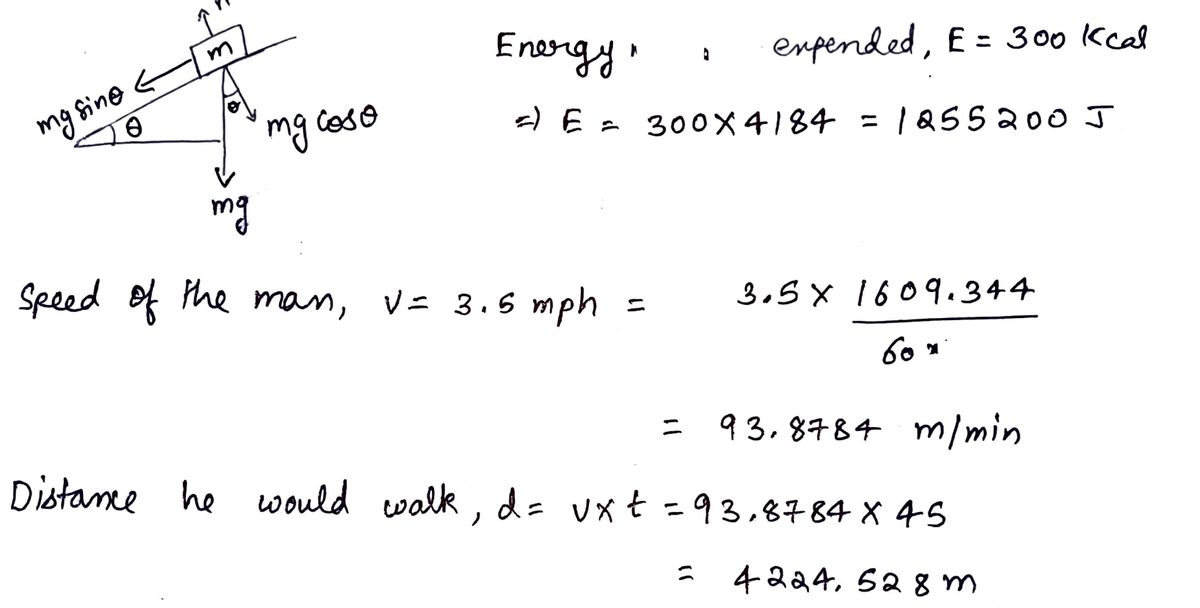 n
m
mg sinθ
θ
θ
mg cosθ
mg
Energy expended, E = 300 Kcal
⇒ E = 300 × 4184 = 1255200 J
Speed of the man, v = 3.5 mph = 3.5 × 1609.344 / 60
= 93.8784 m/min
Distance he would walk, d = v × t = 93.8784 × 45
= 4224.528 m